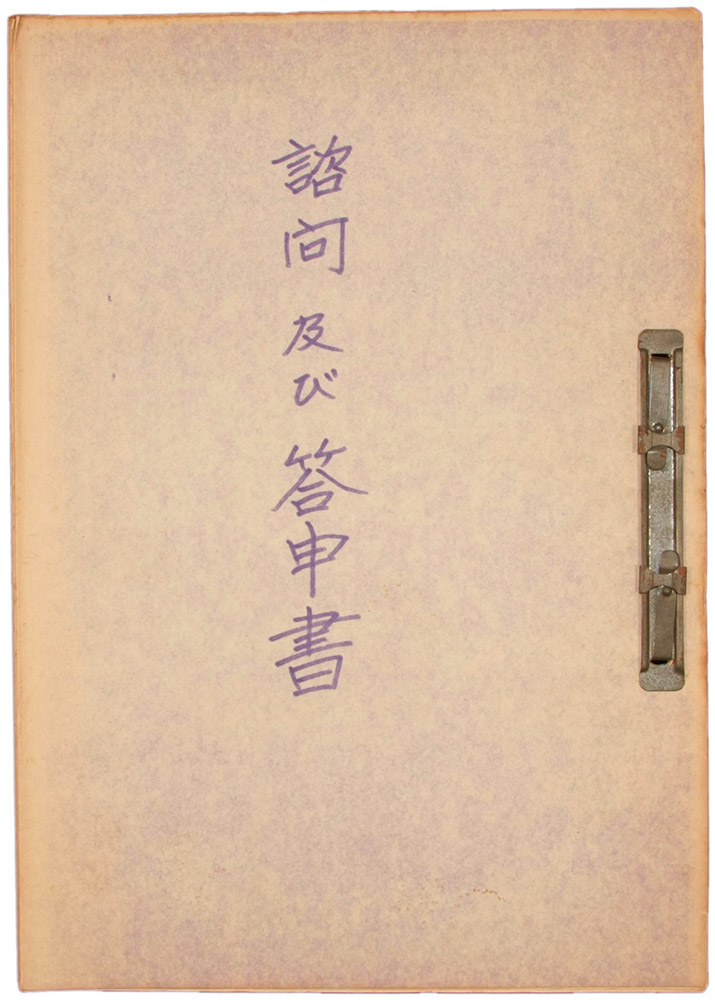 諮問及び答申書